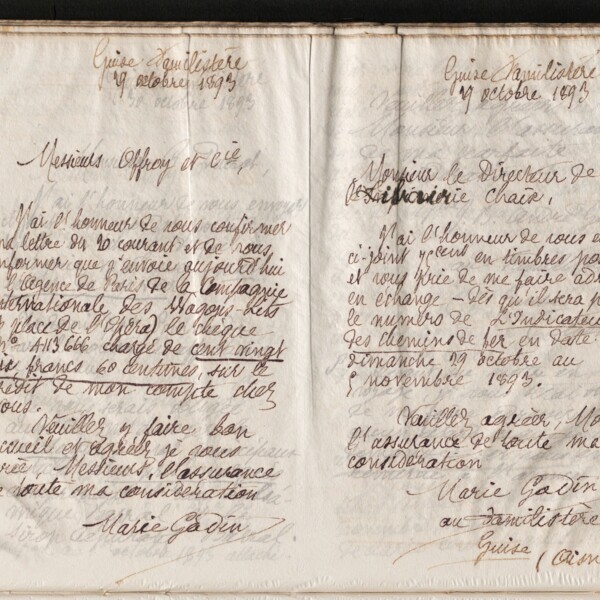 Guise Familistère
29 octobre 1893
Messieurs Offroy et Cie,
J'ai l'honneur de vous confirmer
ma lettre du 20 courant et de vous
informer que j'envoie aujourd'hui
à l'agence de Paris de la Compagnie
internationale des Wagons-lits
place de l'Opéra) le chèque
N° 413666 chargé de cent vingt
francs 60 centimes, sur le
crédit de mon compte chez
vous.
Veuillez y faire bon
accueil et agréer je vous
prie, Messieurs, l'assurance
de toute ma considération
Marie Godin
Guise Familistère
29 octobre 1893
Monsieur le Directeur de
l'Imprimerie Chaix,
J'ai l'honneur de vous en
ci-joint 75 cent en timbres po
et vous prie de me faire adr
en échange – dès qu'il sera p
le numéro de L'Indicateu
des chemins de fer en date
dimanche 29 octobre au
5 novembre 1893.
Veuillez agréer, Mo
l'assurance de toute ma
considération
Marie Godin
au Familistère
Guise (Aisn